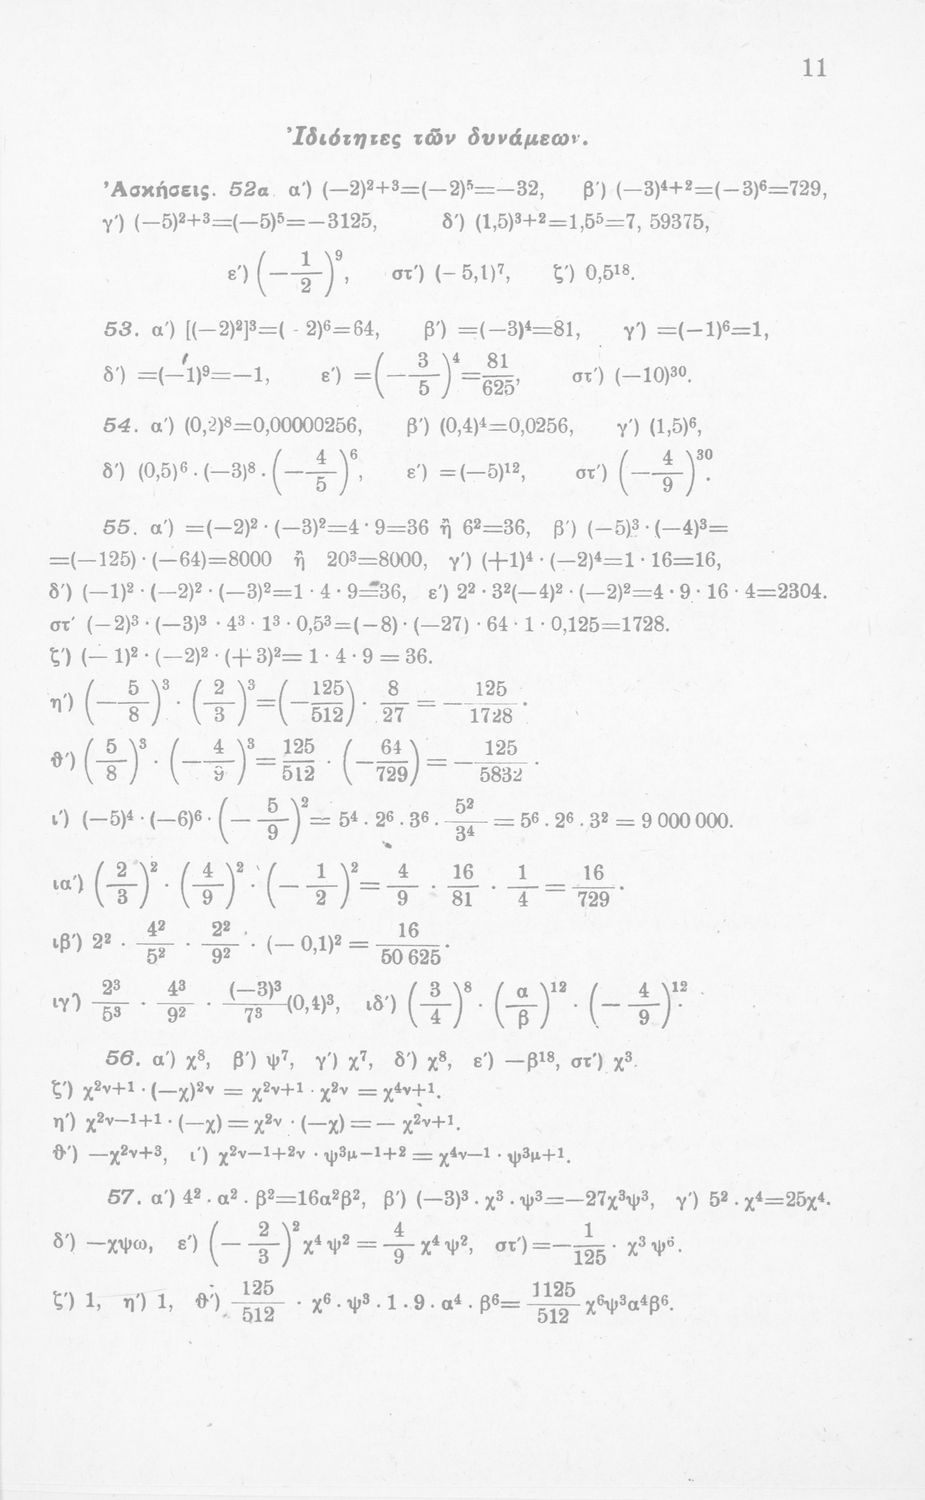 11
Ἰδιότητες τῶν δυνάμεων.
Ἀσκήσεις. 52α α′) (—2)²⁺³=(—2)⁵=—32, β′) (—3)⁴⁺²=(—3)⁶=729,
γ′) (—5)²⁺³=(—5)⁵=—3125, δ′) (1,5)³⁺²=1,5⁵=7, 59375,
ε′) (—1/2)⁹, στ′) (-5,1)⁷, ζ′) 0,5¹⁸.
53. α′) [(—2)²]³=( - 2)⁶=64, β′) =(—3)⁴=81, γ′) =(—1)⁶=1,
δ′) =(—1)⁹=—1, ε′) =(—3/5)⁴=81/625, στ′) (—10)³⁰.
54. α′) (0,2)⁸=0,00000256, β′) (0,4)⁴=0,0256, γ′) (1,5)⁶,
δ′) (0,5)⁶·(—3)⁸·(—4/5)⁶, ε′) =(—5)¹², στ′) (—4/9)³⁰.
55. α′) =(—2)²·(—3)²=4·9=36 ἢ 6²=36, β′) (—5)³·(—4)³=
=(—125)·(—64)=8000 ἢ 20³=8000, γ′) (+1)⁴·(—2)⁴=1·16=16,
δ′) (—1)²·(—2)²·(—3)²=1·4·9=36, ε′) 2²·3²(—4)²·(—2)²=4·9·16·4=2304.
στ′ (—2)³·(—3)³·4³·1³·0,5³=(—8)·(—27)·64·1·0,125=1728.
ζ′) (—1)²·(—2)²·(+3)²=1·4·9=36.
η′) (—5/8)³·(2/3)³=(—125/512)·8/27=—125/1728.
θ′) (5/8)³·(—4/9)³=125/512·(—64/729)=—125/5832.
ι′) (—5)⁴·(—6)⁶·(—5/9)²=5⁴.2⁶.3⁶.5²/3⁴=5⁶.2⁶.3²=9 000 000.
ια′) (2/3)²·(4/9)²·(—1/2)²=4/9·16/81·1/4=16/729.
ιβ′) 2²·4²/5²·2²/9²·(—0,1)²=16/50 625.
ιγ′) 2³/5³·4³/9²·(—3)³/7³(0,4)³, ιδ′) (3/4)⁸·(α/β)¹²·(—4/9)¹².
56. α′) χ⁸, β′) ψ⁷, γ′) χ⁷, δ′) χ⁸, ε′) —β¹⁸, στ′) χ³.
ζ′) χ²ᵛ⁺¹·(—χ)²ᵛ = χ²ᵛ⁺¹·χ²ᵛ = χ⁴ᵛ⁺¹.
η′) χ²ᵛ—¹⁺¹·(—χ) = χ²ᵛ·(—χ) = — χ²ᵛ⁺¹.
θ′) —χ²ᵛ⁺³, ι′) χ²ᵛ—¹⁺²ᵛ·ψ³ᵘ—¹⁺² = χ⁴ᵛ—¹·ψ³ᵘ⁺¹.
57. α′) 4².α².β²=16α²β², β′) (—3)³.χ³.ψ³=—27χ³ψ³, γ′) 5².χ⁴=25χ⁴.
δ′) —χψω, ε′) (—2/3)²χ⁴ψ²=4/9χ⁴ψ², στ′)=—1/125·χ³ψ⁶.
ζ′) 1, η′) 1, θ′) 125/512·χ⁶.ψ³.1.9.α⁴.β⁶=1125/512χ⁶ψ³α⁴β⁶.